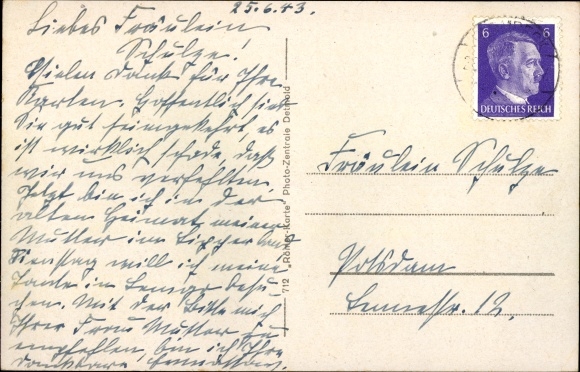 25.6.43.
Liebes Fräulein
Schulze!
Vielen Dank für Ihre
Karten. Hoffentlich sind
Sie gut heimgekehrt, es
ist wirklich schade, daß
wir uns verfehlten.
Jetzt bin ich in der
alten Heimat meiner
Mutter im Lipperland
Dienstag will ich meine
Tante in Lemgo besu-
chen. Mit der Bitte mich
Ihrer Frau Mutter zu
empfehlen, bin ich Ihre
dankbare
712 "Römer-Karte" Photo-Zentrale Detmold
6 6
DEUTSCHES REICH
Fräulein Schulze
Potsdam
Lennestr. 12.